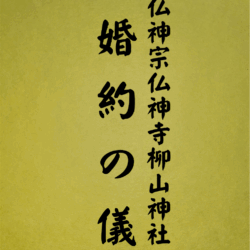 仏神宗仏神寺柳山神社
婚約の儀